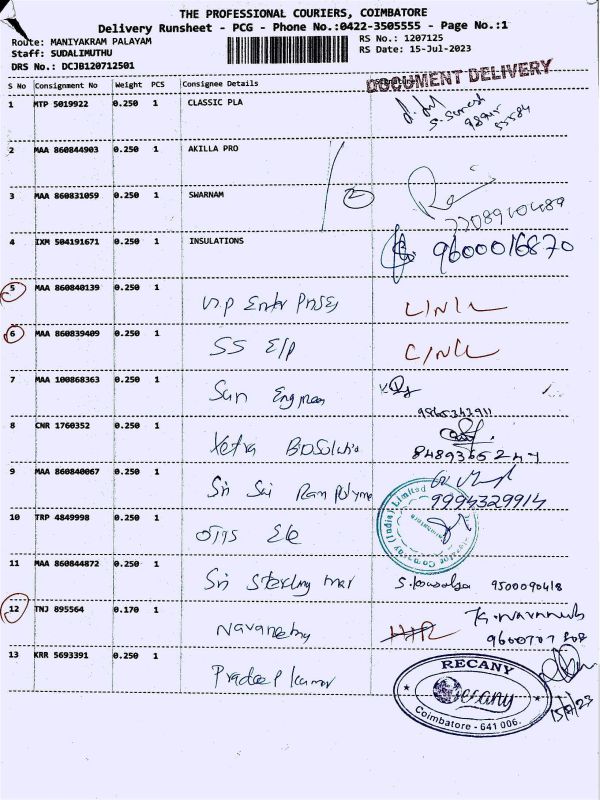 THE PROFESSIONAL COURIERS, COIMBATORE
Delivery Runsheet - PCG - Phone No.:0422-3505555 - Page No.:1
Route: MANIYAKRAM PALAYAM
RS No.: 1207125
Staff: SUDALIMUTHU
RS Date: 15-Jul-2023
DRS No.: DCJB120712501
DOCUMENT DELIVERY
S No Consignment No Weight PCS Consignee Details
1 MTP 5019922 0.250 1 CLASSIC PLA
2 MAA 860844903 0.250 1 AKILLA PRO
3 MAA 860831059 0.250 1 SWARNAM 2
4 IXM 504191671 0.250 1 INSULATIONS 9600016870
5 MAA 860840139 0.250 1 V.P Enter Prises
6 MAA 860839409 0.250 1 SS E/P
7 MAA 100868363 0.250 1 Sun
8 CNR 1760352 0.250 1 8489365247
9 MAA 860840067 0.250 1 Sri Sai Ram Polyme 9994329914
10 TRP 4849998 0.250 1 OTIS Ele
11 MAA 860844872 0.250 1 Sri Sterling mar S. Kowsalya 9500090418
12 TNJ 895564 0.170 1
13 KRR 5693391 0.250 1 Pradeep kumar
RECANY
Recany
Coimbatore - 641 006.
15/7/23